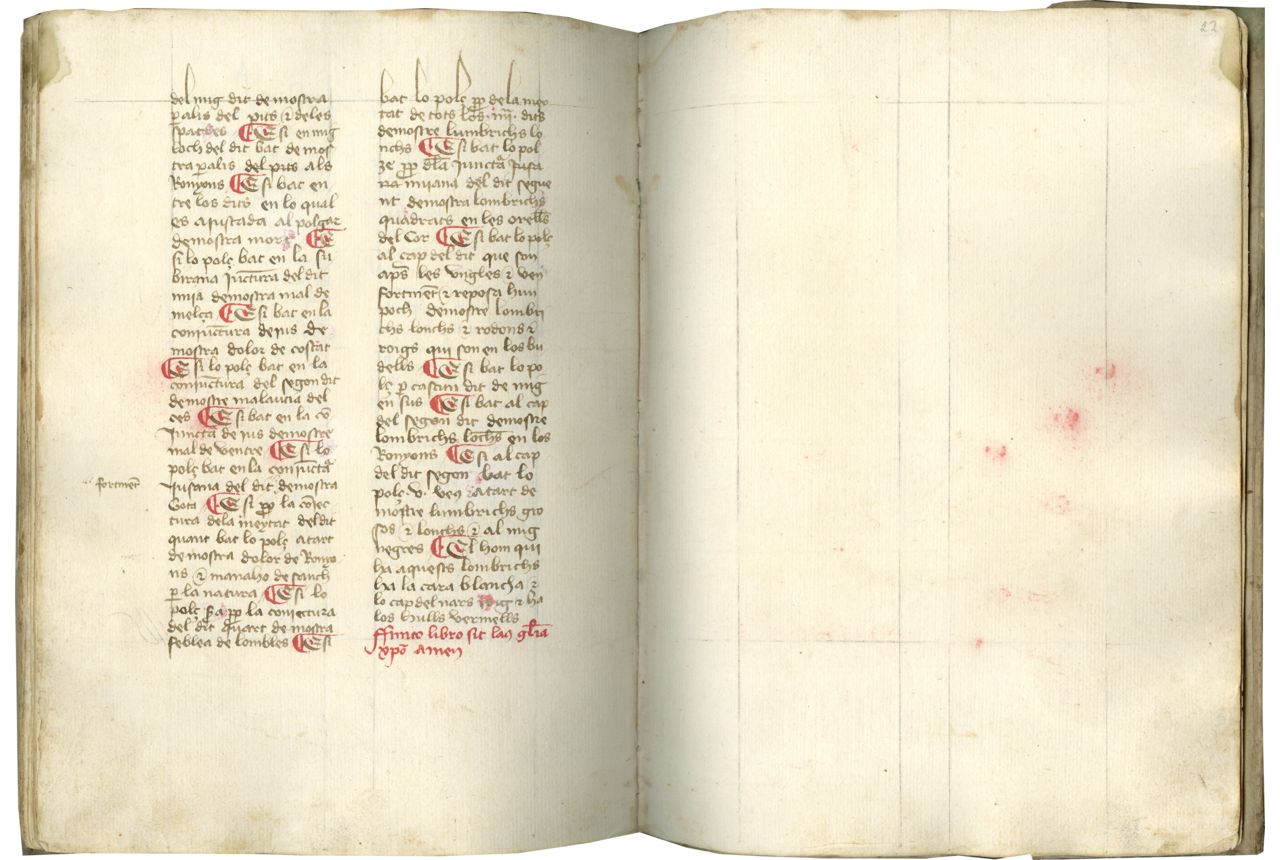 del mig dit demostra
palis del pits ⁊ deles
spatles ¶ E si en mig
loch del dit bat demos
tra palis del pits als
Ronyons ¶ E si bat en
tre los dits en lo qual
es aiustada al polgar
demostra more ¶ E
si lo polç bat en la su
birana iunctura del dit
mija demostra mal de
melça ¶ E si bat en la
coniunctura de jus de
mostra dolor de costat
¶ E si lo polç bat en la
coniunctura del segon dit
demostre malautia del
ces ¶ E si bat en la cō
junctā de jus demostre
mal de ventre ¶ E si lo
polç bat en la coniunctā
jusana del dit demostra
fortment
Gota ¶ E si ꝓp la cōiec
tura dela meytat del dit
quart bat lo polç atart
demostra dolor de Ronyo
ns ⁊ manaho de sanch
ꝑ la natura ¶ E si lo
polç ꝓp la coniectura
del dit quart demostra
feblea de lombles ¶ E si
bat lo polç ꝓp dela mey
tat de tots los .iiii. dits
demostre lumbrichs lo
nchs ¶ E si bat lo pol
ze ꝓp dla junctā jusa
na mijana del dit segue
nt demostra lombrichs
quadrats en les orelles
del Cor ¶ E si bat lo polç
al cap del dit que son
aps les ungles ⁊ ven
fortment ⁊ reposa hun
poch demostre lombri
chs lonchs ⁊ rodons ⁊
roigs qui son en los bu
dells ¶ E si bat lo po
lç ꝑ cascun dit de mig
en sus ¶ E si bat al cap
del segon dit demostre
lombrichs lonchs en los
Ronyons ¶ E si al cap
del dit segon bat lo
polç .v. veı atart de
mostre lumbrichs gro
sos ⁊ lonchs ⁊ al mig
negres ¶ El hom qui
ha aquests lombrichs
ha la cara blancha ⁊
lo cap del nars roig ⁊ ha
los hulls vermells
ffinito libro sit laus glīa
xpō amen
22